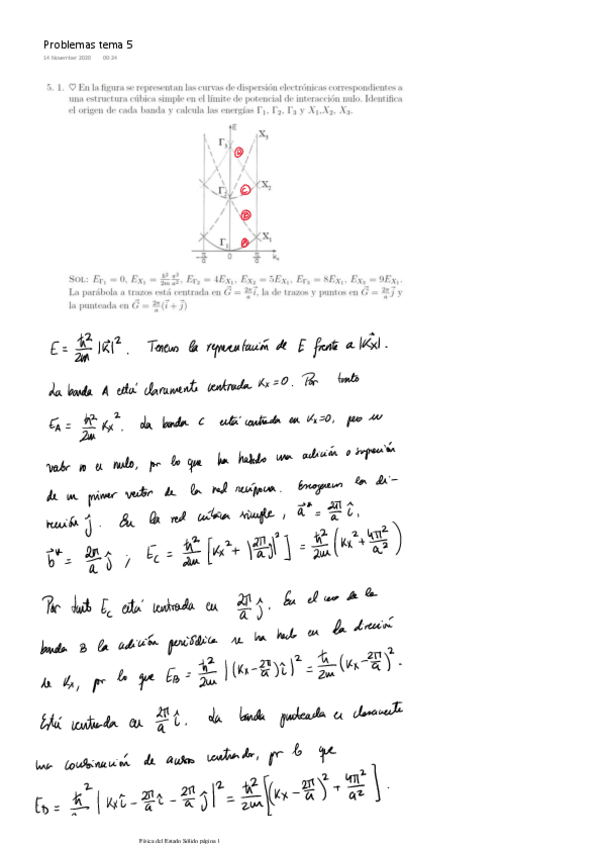 Problemas tema 5
14 November 2020 00:24
5. 1. ♡ En la figura se representan las curvas de dispersión electrónicas correspondientes a
una estructura cúbica simple en el límite de potencial de interacción nulo. Identifica
el origen de cada banda y calcula las energías Γ₁, Γ₂, Γ₃ y X₁,X₂, X₃.
E
Γ₃ X₃
D
Γ₂ C X₂
B
Γ₁ A X₁
-π/a 0 π/a kₓ
SOL: E_Γ₁ = 0, E_X₁ = ℏ²/2m π²/a², E_Γ₂ = 4E_X₁, E_X₂ = 5E_X₁, E_Γ₃ = 8E_X₁, E_X₃ = 9E_X₁.
La parábola a trazos está centrada en G⃗ = 2π/a i⃗, la de trazos y puntos en G⃗ = 2π/a j⃗ y
la punteada en G⃗ = 2π/a (i⃗ + j⃗)
E = ℏ²/2m |k⃗|². Tenemos la representación de E frente a |k⃗x|.
La banda A está claramente centrada kx = 0. Por tanto
E_A = ℏ²/2m kx². La banda C está centrada en kx=0, pero su
valor no es nulo, por lo que ha habido una adición o
de un primer vector de la red recíproca. Escogemos la di-
rección ĵ. En la red cúbica simple, a⃗* = 2π/a î,
b⃗* = 2π/a ĵ ; E_C = ℏ²/2m [kx² + |2π/a ĵ|²] = ℏ²/2m (kx² + 4π²/a²)
Por tanto E_C está centrada en 2π/a ĵ. En el caso de la
banda B la adición periódica se ha hecho en la dirección
de kx, por lo que E_B = ℏ²/2m |(kx - 2π/a) î|² = ℏ/2m (kx - 2π/a)².
Está centrada en 2π/a î. La banda punteada es claramente
una combinación de ambos centrados, por lo que
E_D = ℏ²/2m |kx î - 2π/a î - 2π/a ĵ|² = ℏ²/2m [(kx - 2π/a)² + 4π²/a²].
Física del Estado Sólido página 1